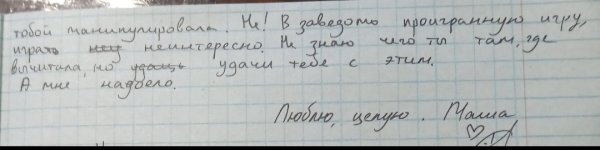 тобой манипулировала. Не! В заведомо проигранную игру,
играть неинтересно. Не знаю чего ты там, где
вычитала, но удачи тебе с этим.
А мне надоело.
Люблю, целую. Маша